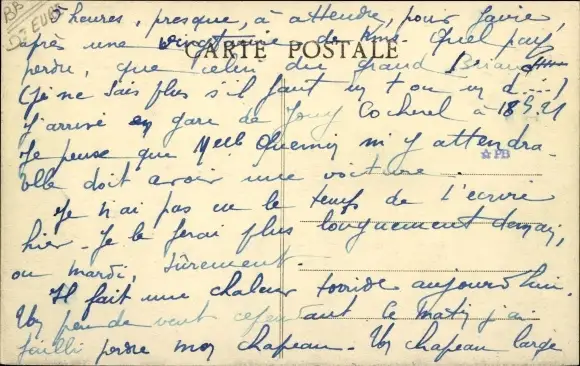 BB
Dt EURE
5 heures, presque, à attendre, pour faire,
après une vingtaine de kms. Quel pays
CARTE POSTALE
perdu, que celui du grand Briand
(Je ne sais plus s'il faut un t ou un d ....)
J'arrive en gare de Jouy Cocherel à 18h.21
Je pense que Melle Quemin m'y attendra.
☆PB
Elle doit avoir une voiture.
Je n'ai pas eu le temps de t'écrire
hier. Je le ferai plus longuement demain,
ou mardi, sûrement.
Il fait une chaleur torride aujourd'hui.
Un peu de vent cependant. Ce matin j'ai
failli perdre mon chapeau. Un chapeau large